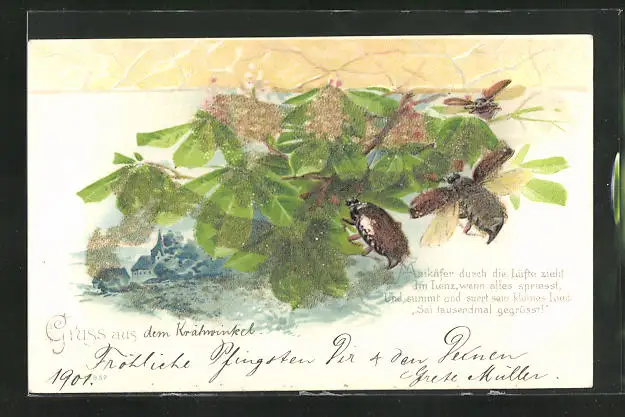 Maikäfer durch die Lüfte zieht
Im Lenz, wenn alles spriesst,
Und summt und surrt sein kleines Lied
„Sei tausendmal gegrüsst!"
Gruss aus dem Krähwinkel.
Fröhliche Pfingsten Dir & den Deinen
1901. Grete Müller.